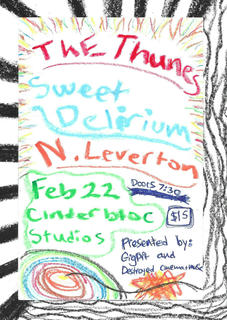 The Thunes
Sweet
Delirium
N. Leverton
Feb 22
Doors 7:30
Cinderbloc
$15
Studios
Presented by:
GigPit and
Destroyed Cinema + Music